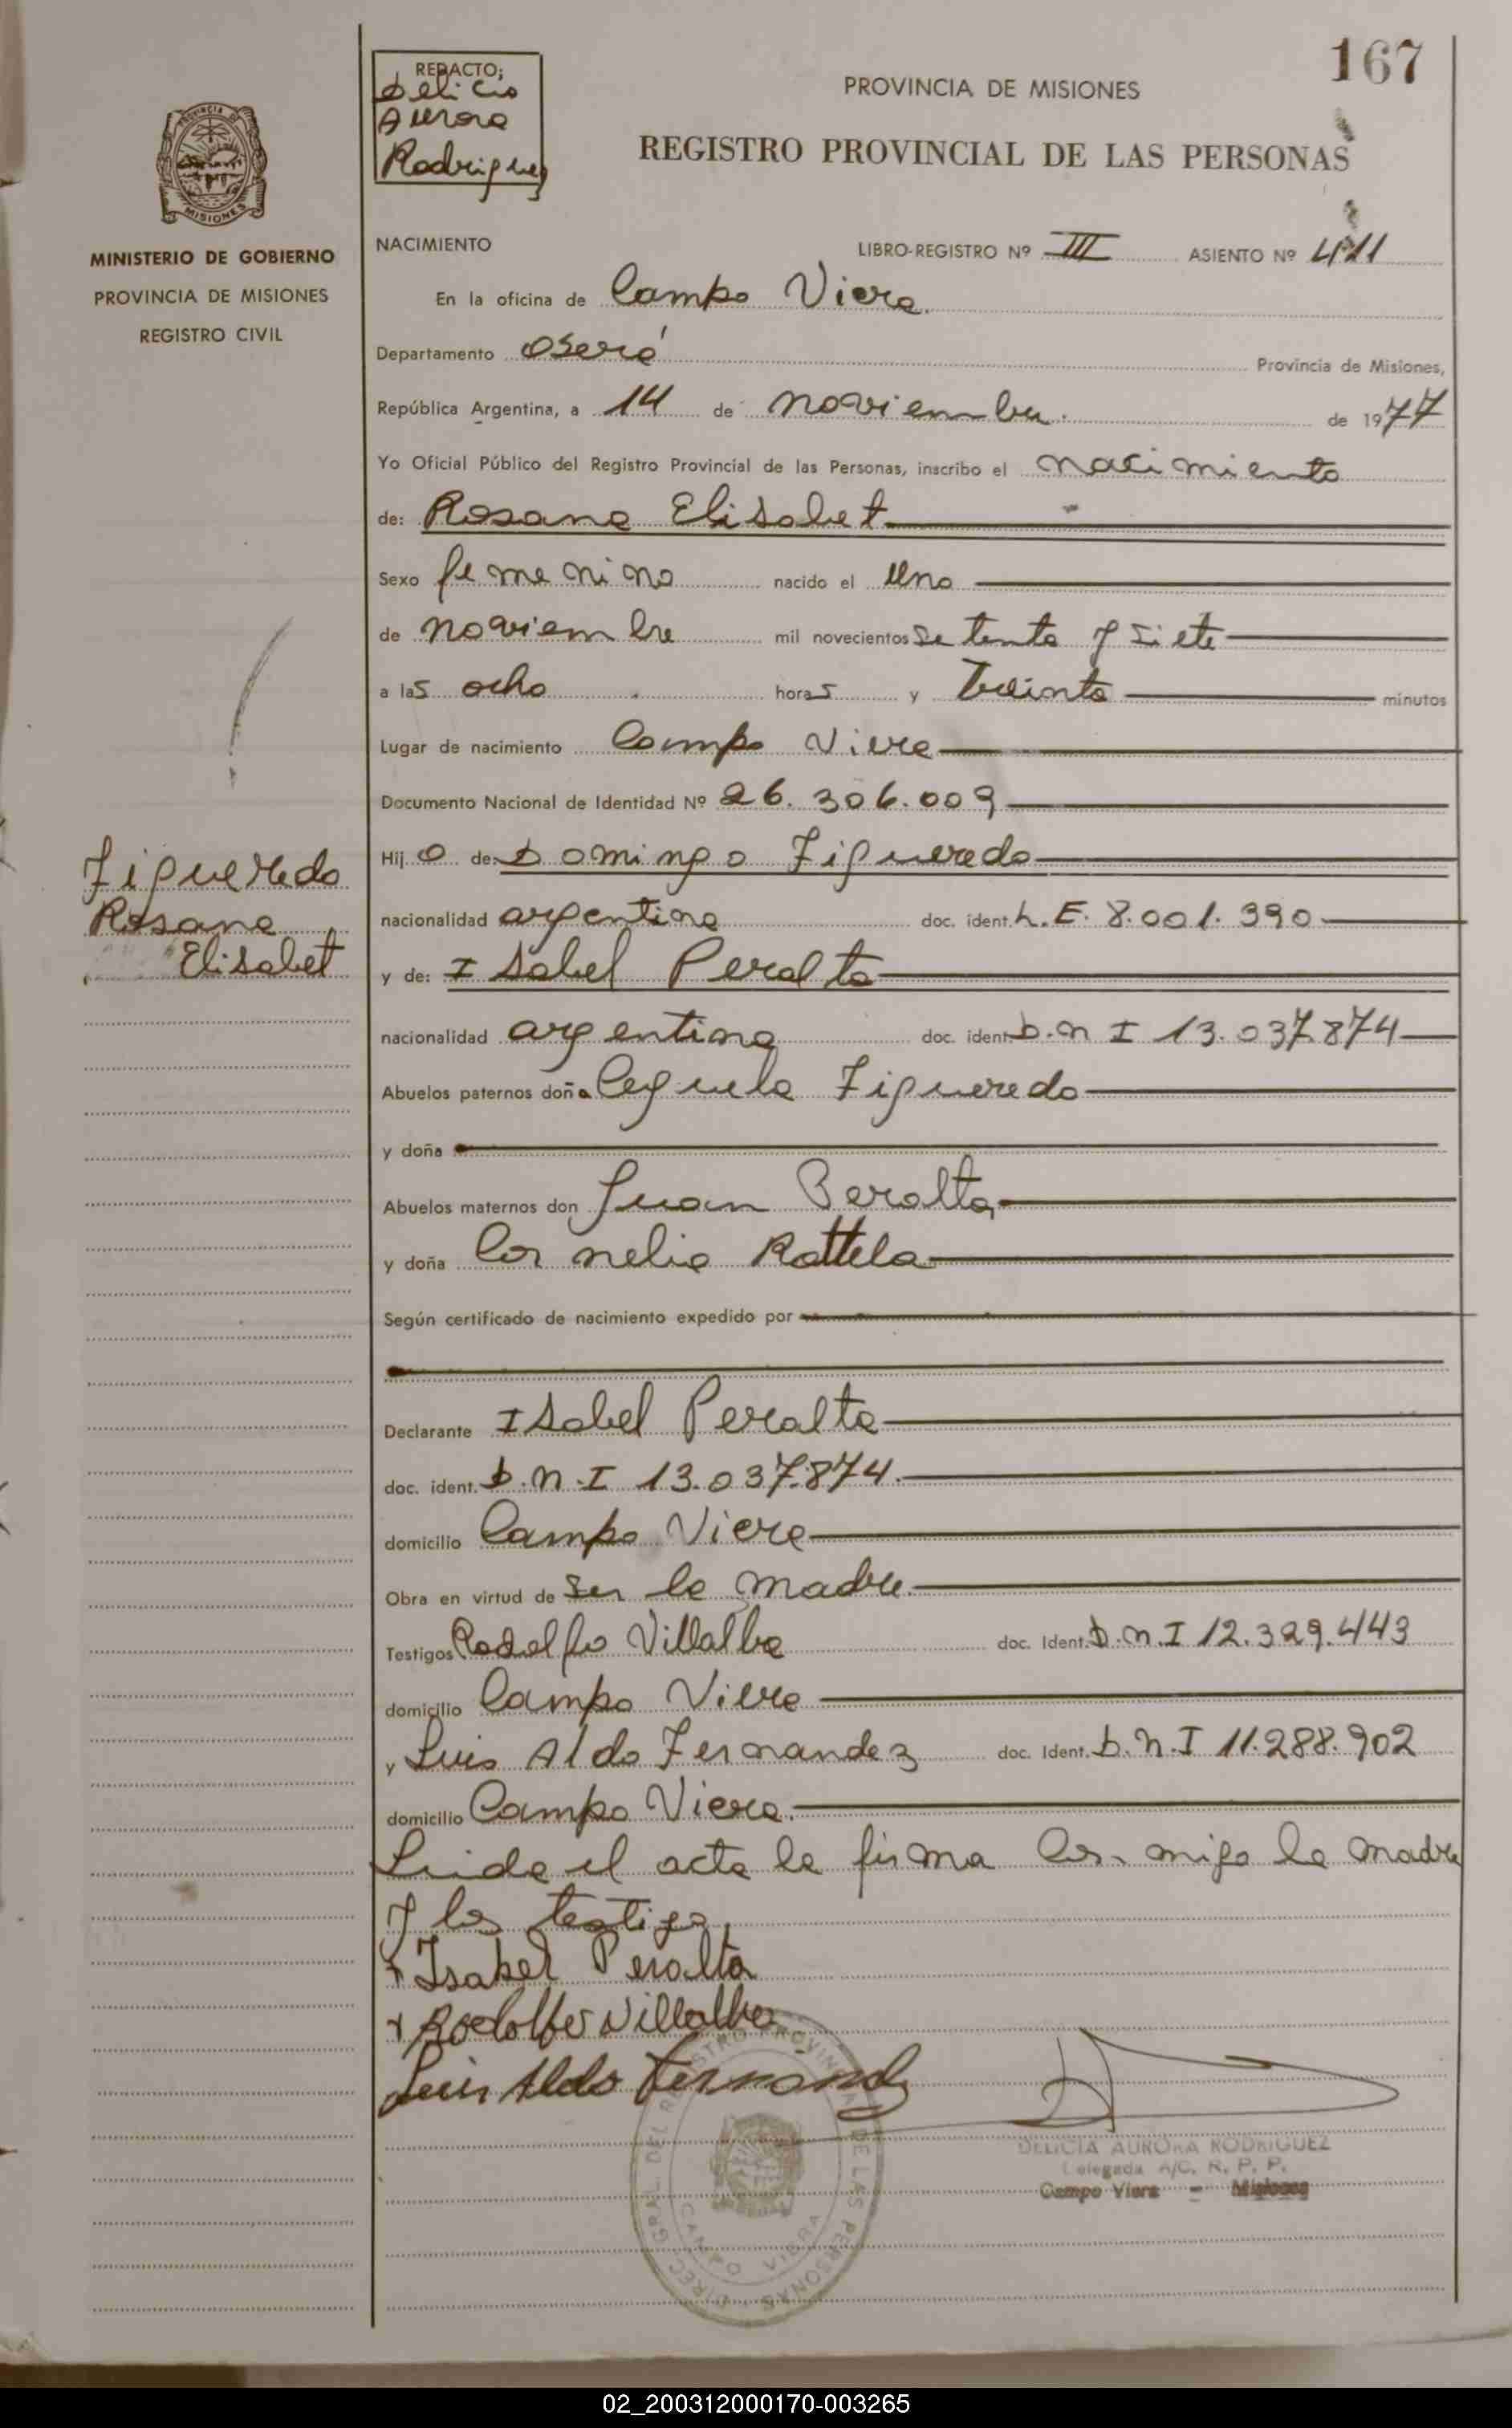 167
REDACTO;
Delicia
Aurora
Rodriguez
PROVINCIA DE MISIONES
REGISTRO PROVINCIAL DE LAS PERSONAS
PROVINCIA DE
MISIONES
MINISTERIO DE GOBIERNO
PROVINCIA DE MISIONES
REGISTRO CIVIL
NACIMIENTO
LIBRO-REGISTRO Nº III ASIENTO Nº 411
En la oficina de Campo Viera
Departamento Oberá Provincia de Misiones,
República Argentina, a 14 de noviembre de 1977
Yo Oficial Público del Registro Provincial de las Personas, inscribo el nacimiento
de: Rosana Elisabet
Sexo femenino nacido el uno
de noviembre mil novecientos setenta y siete
a las ocho horas y treinta minutos
Lugar de nacimiento Campo Viera
Documento Nacional de Identidad Nº 26.306.009
Figueredo
Rosana
Elisabet
Hija de: Domingo Figueredo
nacionalidad argentina doc. ident. L.E. 8.001.390
y de: Isabel Peralta
nacionalidad argentina doc. ident. D.N.I 13.037.874
Abuelos paternos doña Figueredo
y doña
Abuelos maternos don Juan Peralta
y doña Cornelia Rottela
Según certificado de nacimiento expedido por
Declarante Isabel Peralta
doc. ident. D.N.I 13.037.874
domicilio Campo Viera
Obra en virtud de ser la madre
Testigos Rodolfo Villalba doc. Ident. D.N.I 12.329.443
domicilio Campo Viera
y Luis Aldo Fernandez doc. Ident. D.N.I 11.288.902
domicilio Campo Viera.
Leida el acta la firma con migo la madre
y los testigos
Isabel Peralta
Rodolfo Villalba
Luis Aldo Fernandez
DIREC. GRAL. DEL REGISTRO PROVINCIAL DE LAS PERSONAS
CAMPO VIERA
DELICIA AURORA RODRIGUEZ
Delegada A/C. R. P. P.
Campo Viera - Misiones
02_200312000170-003265